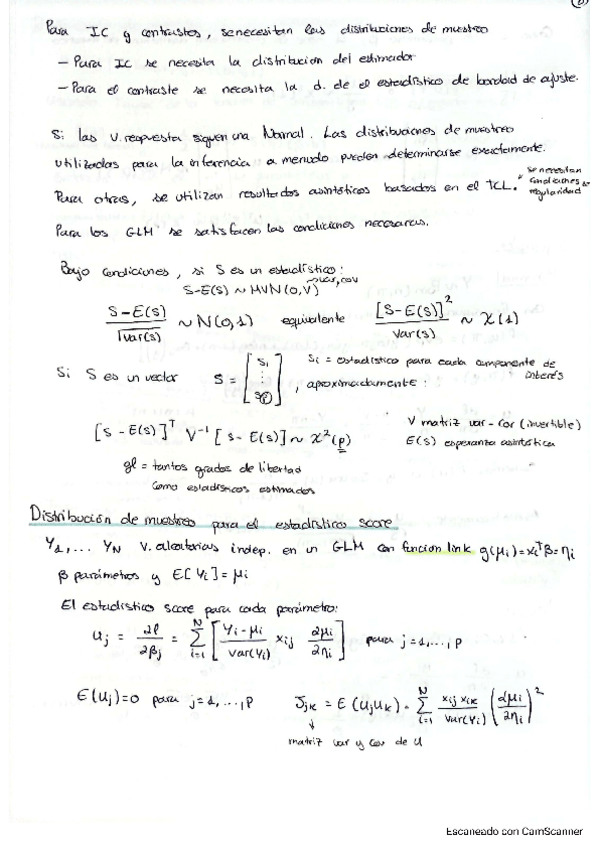 Para IC y contrastes, se necesitan las distribuciones de muestreo
– Para IC se necesita la distribucion del estimador
– Para el contraste se necesita la d. de el estadístico de bondad de ajuste.
Si las v. respuesta siguen una Normal. Las distribuciones de muestreo
utilizadas para la inferencia a menudo pueden determinarse exactamente.
Para otras, se utilizan resultados asintóticos basados en el TCL. * se necesitan condiciones de regularidad
Para los GLM se satisfacen las condiciones necesarias.
Bajo condiciones, si S es un estadístico:
S-E(S) ~ MVN(0,V) → var, cov
(S-E(S))/√var(s) ~ N(0,1) equivalente [S-E(S)]²/var(s) ~ χ(1)
Si S es un vector S = [S₁ ⋮ Sₚ], Si = estadístico para cada componente de interés
aproximadamente:
[S-E(S)]ᵀ V⁻¹ [S-E(S)] ~ χ²(p) V matriz var-cov (invertible)
E(S) esperanza asintótica
gl = tantos grados de libertad
como estadísticos estimados
Distribución de muestreo para el estadístico score
Y₁,... Y_N v. aleatorias indep. en un GLM con funcion link g(μi) = xiᵀβ = ηi
β parámetros y E[Yi] = μi
El estadístico score para cada parámetro:
Uj = ∂l/∂βj = Σ_{i=1}^{N} [(Yi-μi)/var(Yi) xij ∂μi/∂ηi] para j=1,...,p
E(Uj)=0 para j=1,...,p Jjk = E(UjUk) = Σ_{i=1}^{N} xij xik/var(Yi) (∂μi/∂ηi)²
matriz var y cov de U
Escaneado con CamScanner